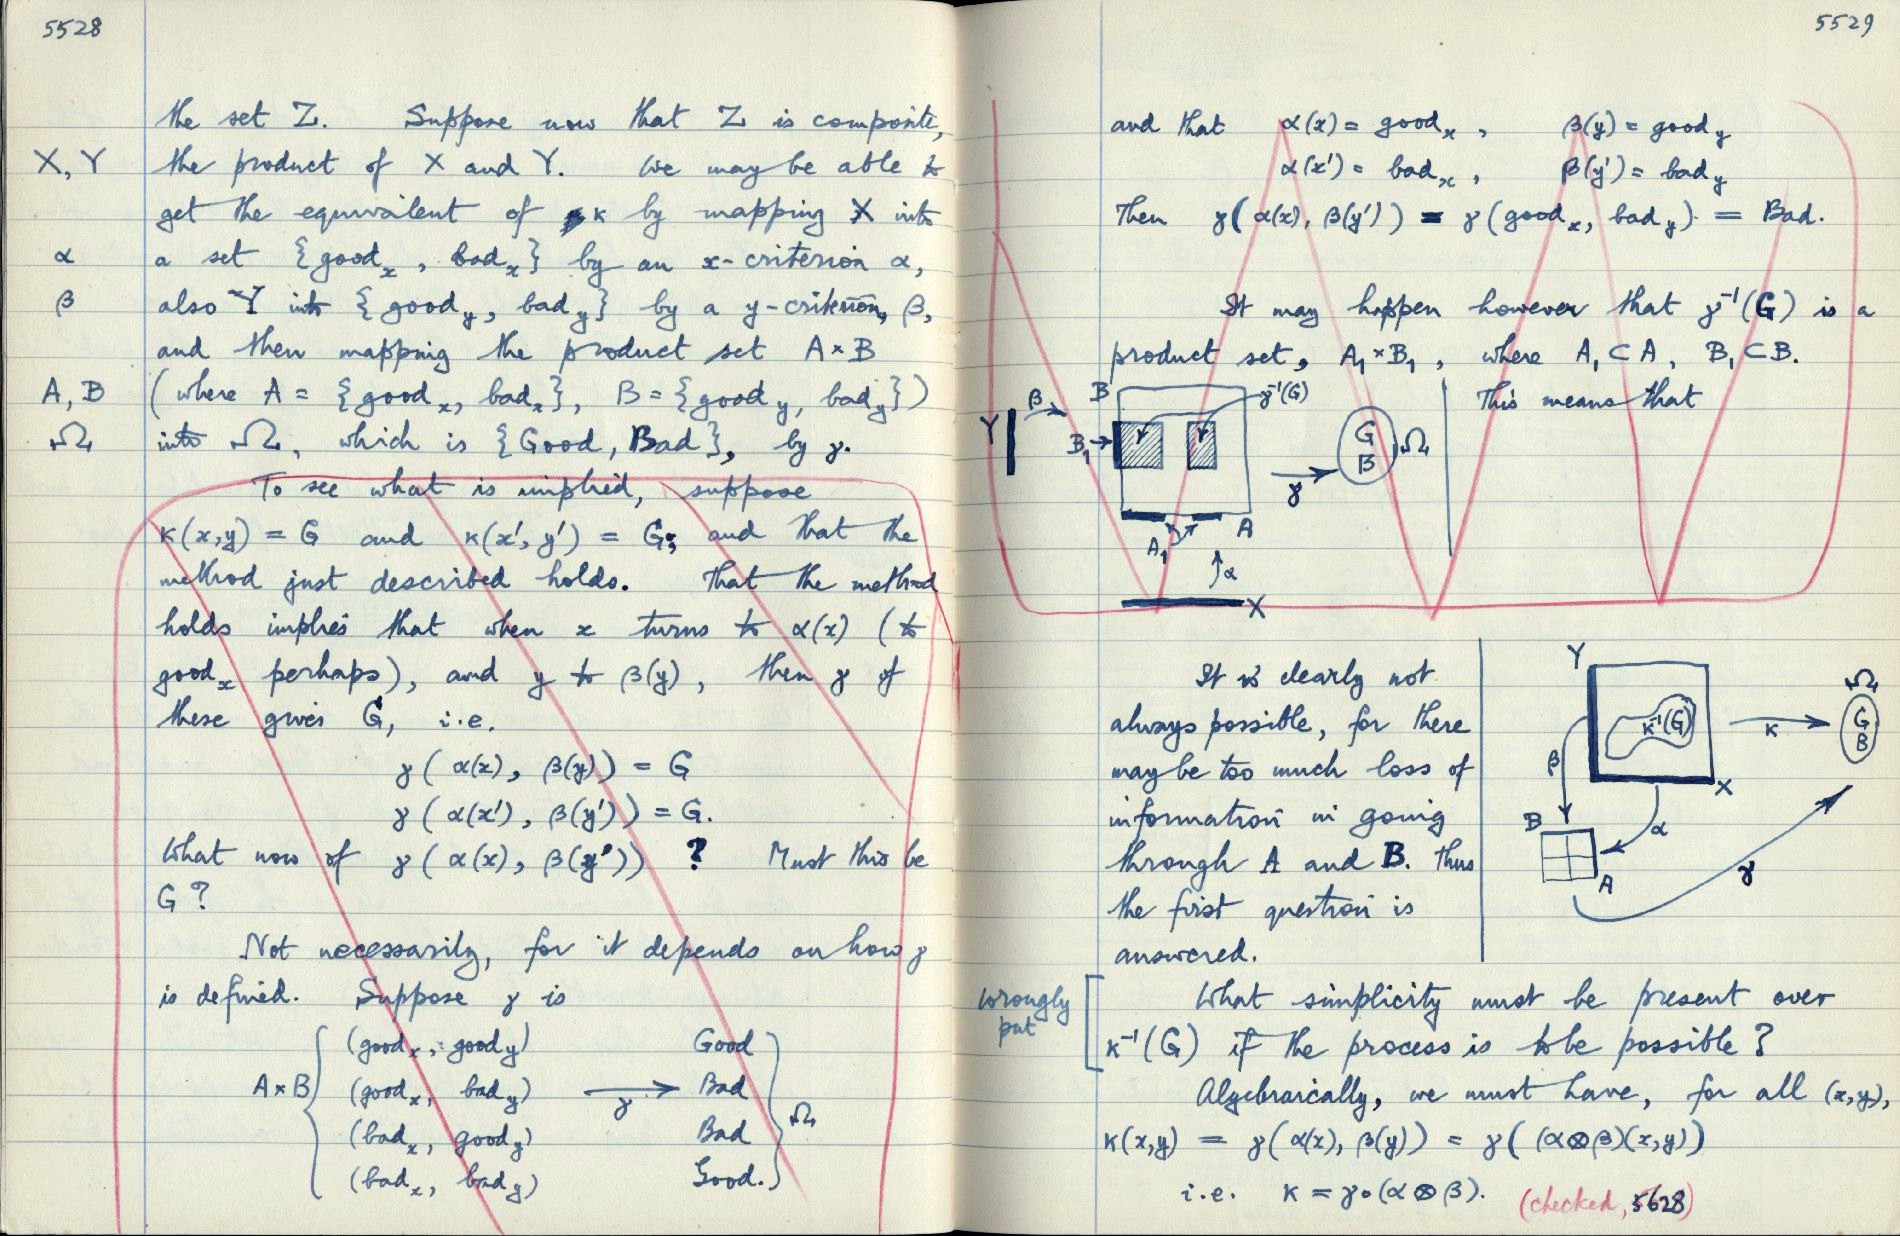 5528
the set Z. Suppose now that Z is composite,
X, Y the product of X and Y. We may be able to
get the equivalent of κ by mapping X into
α a set {good_x, bad_x} by an x-criterion α,
β also Y into {good_y, bad_y} by a y-criterion, β,
and then mapping the product set A×B
A, B (where A = {good_x, bad_x}, B = {good_y, bad_y})
Ω into Ω, which is {Good, Bad}, by γ.
To see what is implied, suppose
κ(x,y) = G and κ(x', y') = G; and that the
method just described holds. That the method
holds implies that when x turns to α(x) (to
good_x perhaps), and y to β(y), then γ of
these gives G, i.e.
γ( α(x), β(y)) = G
γ( α(x'), β(y')) = G.
What now of γ( α(x), β(y')) ? Must this be
G?
Not necessarily, for it depends on how γ
is defined. Suppose γ is
(good_x, good_y) Good
A×B (good_x, bad_y) → Bad
γ
(bad_x, good_y) Bad Ω
(bad_x, bad_y) Good.
5529
and that α(x) = good_x, β(y) = good_y
α(x') = bad_x, β(y') = bad_y
Then γ( α(x), β(y')) = γ(good_x, bad_y) = Bad.
It may happen however that γ⁻¹(G) is a
product set, A₁×B₁, where A₁ ⊂ A, B₁ ⊂ B.
This means that
B
γ⁻¹(G)
β
Y
B₁
G
B
Ω
γ
A₁
A
α
X
It is clearly not
always possible, for there
may be too much loss of
information in going
through A and B. Thus
the first question is
answered.
Y
κ⁻¹(G)
κ
Ω
G
B
β
X
α
B
A
γ
wrongly
put
What simplicity must be present over
κ⁻¹(G) if the process is to be possible?
Algebraically, we must have, for all (x,y),
κ(x,y) = γ( α(x), β(y)) = γ( (α⊗β)(x,y))
i.e. κ = γ∘(α⊗β).
(checked, 5628)